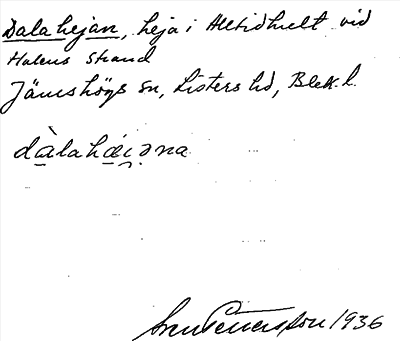 Dalahejan, heja i Alltidhult vid
Halens strand
Jämshögs sn, Listers hd, Blek. l.
dàlahæi̯əna
Sven Petersson 1936